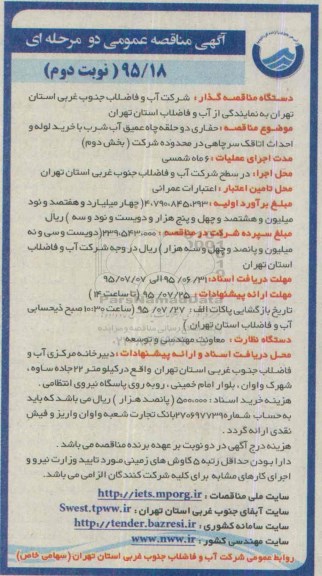 آگهی مناقصه عمومی دو مرحله ای
۹۵/۱۸ ( نوبت دوم)
دستگاه مناقصه گذار : شرکت آب و فاضلاب جنوب غربی استان
تهران به نمایندگی از آب و فاضلاب استان تهران
موضوع مناقصه : حفاری دو حلقه چاه عمیق آب شرب با خرید لوله و
احداث اتاقک سرچاهی در محدوده شرکت ( بخش دوم)
مدت اجرای عملیات : ۶ ماه شمسی
محل اجرا : در سطح شرکت آب و فاضلاب جنوب غربی استان تهران
محل تامین اعتبار : اعتبارات عمرانی
مبلغ برآورد اولیه : ۴,۷۹۰,۸۴۵,۲۹۳ (چهار میلیارد و هفتصد و نود
میلیون و هشتصد و چهل و پنج هزار و دویست و نود و سه ) ریال
مبلغ سپرده شرکت در مناقصه : ۲۳۹,۵۴۳,۰۰۰ (دویست و سی و نه
میلیون و پانصد و چهل و سه هزار) ریال در وجه شرکت آب و فاضلاب
استان تهران
مهلت دریافت اسناد: ۹۵/۰۶/۳۱ الی ۹۵/۰۷/۰۷
مهلت ارائه پیشنهادات : ۹۵/۰۷/۲۵ (تا ساعت ۱۴)
تاریخ بازگشایی پاکات الف: ۹۵/۰۷/۲۷ (ساعت ۱۰:۳۰ صبح ذیحسابی
آب و فاضلاب استان تهران )
دستگاه نظارت : معاونت مهندسی و توسعه
محل دریافت اسناد و ارائه پیشنهادات : دبیرخانه مرکزی آب و
فاضلاب جنوب غربی استان تهران واقع در کیلومتر ۲۲ جاده ساوه ،
شهرک واوان ، بلوار امام خمینی ، روبه روی پاسگاه نیروی انتظامی .
هزینه خرید اسناد : ۵۰۰,۰۰۰ ( پانصد هزار ) ریال می باشد که باید
به حساب شماره ۲۷۰۶۹۷۷۳۹ بانک تجارت شعبه واوان واریز و فیش
نقدی ارائه گردد .
هزینه درج آگهی در دو نوبت بر عهده برنده مناقصه می باشد .
دارا بودن حداقل رتبه ۵ کاوش های زمینی مورد تایید وزارت نیرو و
اجرای کارهای مشابه برای کلیه شرکت کنندگان الزامی می باشد.
سایت ملی مناقصات : http://iets.mporg.ir
سایت آبفای جنوب غربی استان تهران : Swest.tpww.ir
سایت سامانه کشوری : http://tender.bazresi.ir
سایت مهندسی کشور : www.nww.ir
روابط عمومی شرکت آب و فاضلاب جنوب غربی استان تهران (سهامی خاص)